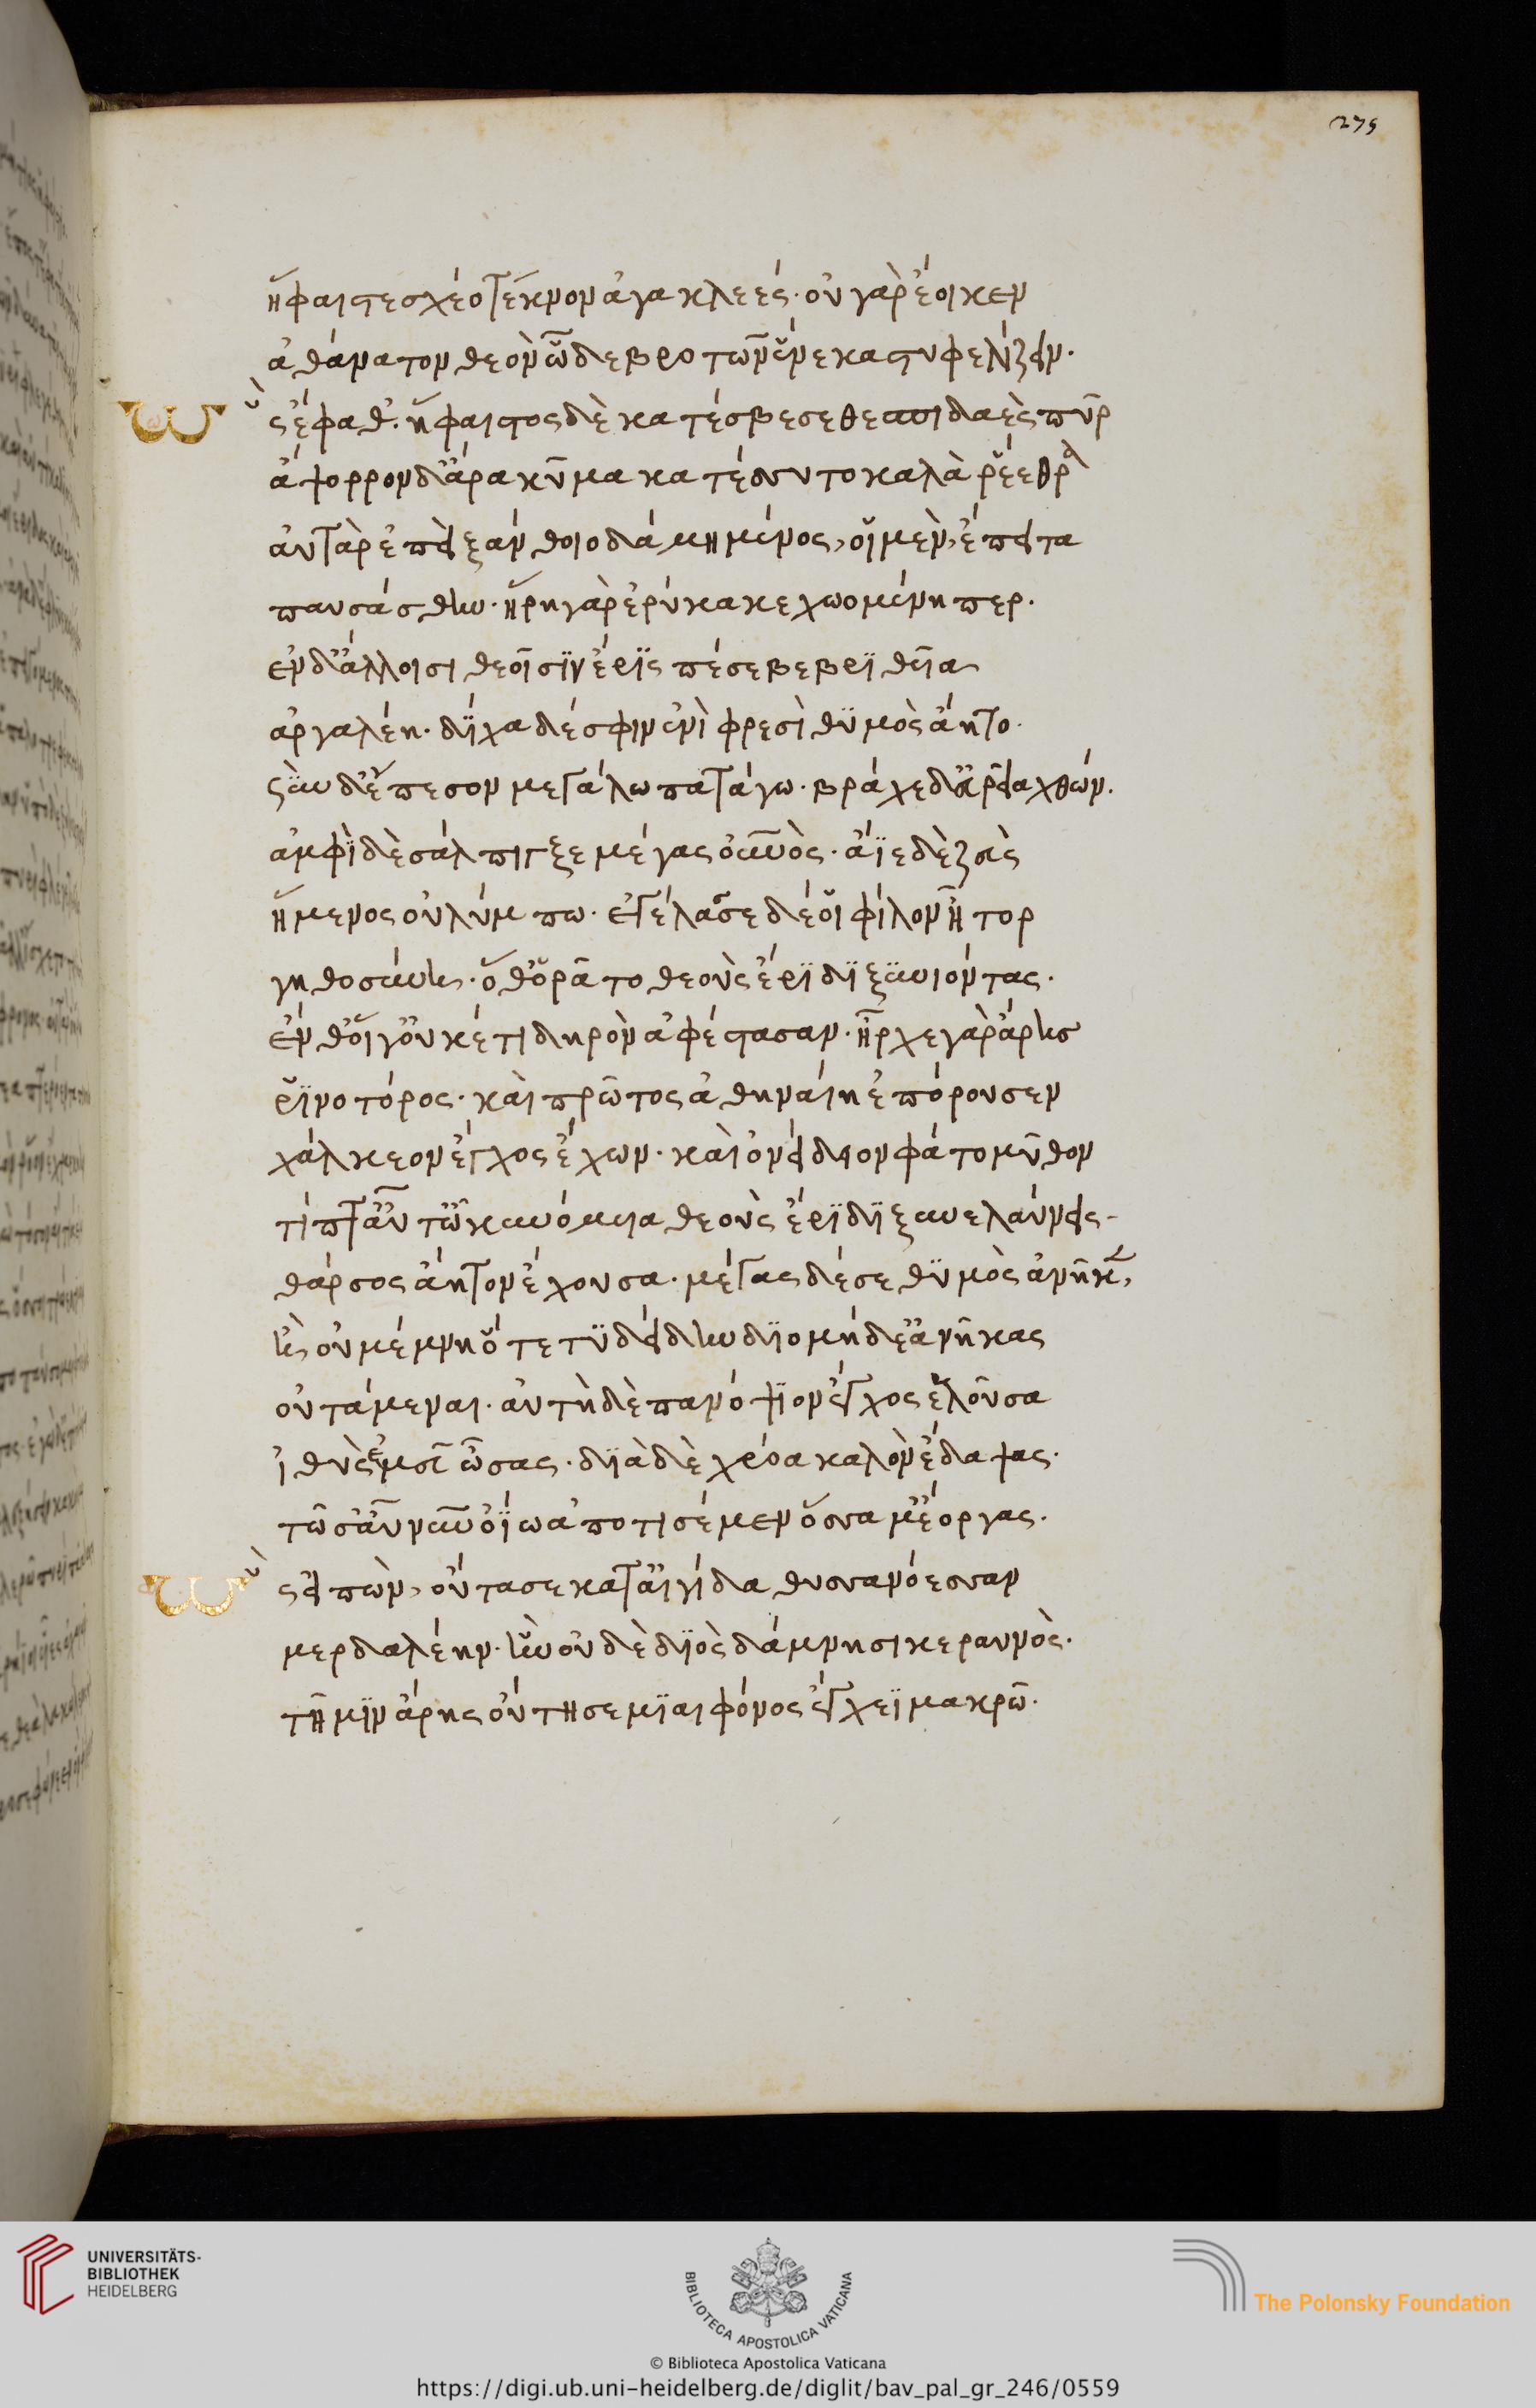 279
ἥφαιστε σχέο τέκνον ἀγακλεές· οὐ γὰρ ἔοικεν
ἀθάνατον θεὸν ὧδε βροτῶν ἕνεκα στυφελίζειν.
ὣς ἔφαθ'. ἥφαιστος δὲ κατέσβεσε θεσπιδαὲς πῦρ
ἄψορρον δ' ἄρα κῦμα κατέσσυτο καλὰ ῥέεθρα
αὐτὰρ ἐπεὶ ξάνθοιο δάμη μένος, οἱ μὲν, ἔπειτα
παυσάσθην· ἥρη γὰρ ἐρύκακε χωομένη περ.
ἐν δ' ἄλλοισι θεοῖσϊν ἔρϊς πέσε βεβρϊθεῖα
ἀργαλέη· δΐχα δέ σφιν ἐνὶ φρεσὶ θϋμὸς ἄητο.
σὺν δ' ἔπεσον μεγάλω πατάγω· βράχε δ' εὐρεῖα χθών.
ἀμφὶ δὲ σάλπιγξε μέγας οὐνὸς· ἄϊε δὲ ζεὺς
ἥμενος οὐλύμπω· ἐγέλασσε δέ οἱ φίλον ἦτορ
γηθοσύνη· ὅθ' ὁρᾶτο θεοὺς ἔρϊδϊ ξϋνιόντας.
ἔνθ' οἵγ' οὐκέτι δηρὸν ἀφέστασαν· ἦρχε γὰρ ἄρης
ῥϊνοτόρος· καὶ πρῶτος ἀθηναίη ἐπόρουσεν
χάλκεον ἔγχος ἔχων· καὶ ὀνείδειον φάτο μῦθον
τίπτ' αὖτ' ὦ κυνόμυια θεοὺς ἔρϊδϊ ξυνελαύνεις
θάρσος ἄητον ἔχουσα· μέγας δέ σε θϋμὸς ἀνῆκεν,
ἢ οὐ μέμνη ὅτε τϋδείδην δϊομήδε' ἀνῆκας
οὐτάμεναι· αὐτὴ δὲ πανόψϊον ἔγχος ἑλοῦσα
ἰθὺς ἐμεῦ ὦσας· δϊὰ δὲ χρόα καλὸν ἔδαψας·
τῶ σ' αὖ νῦν ὀΐω ἀποτισέμεν ὅσσα μ' ἔοργας·
ὣς εἰπὼν, οὔτασε κατ' αἰγίδα θυσσανόεσσαν
μερδαλέην· ἣν οὐδὲ δϊὸς δάμνησι κεραυνὸς·
τῆ μϊν ἄρης οὔτησε μϊαιφόνος ἔγχεϊ μακρῶ·
UNIVERSITÄTS-
BIBLIOTHEK
HEIDELBERG
BIBLIOTECA APOSTOLICA VATICANA
The Polonsky Foundation
© Biblioteca Apostolica Vaticana
https://digi.ub.uni-heidelberg.de/diglit/bav_pal_gr_246/0559